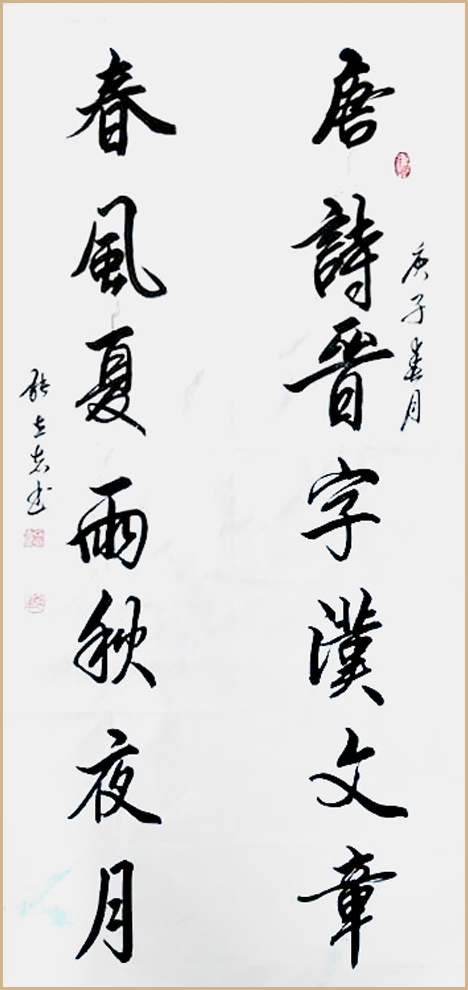 唐詩晉字漢文章
庚子春月
春風夏雨秋夜月
書